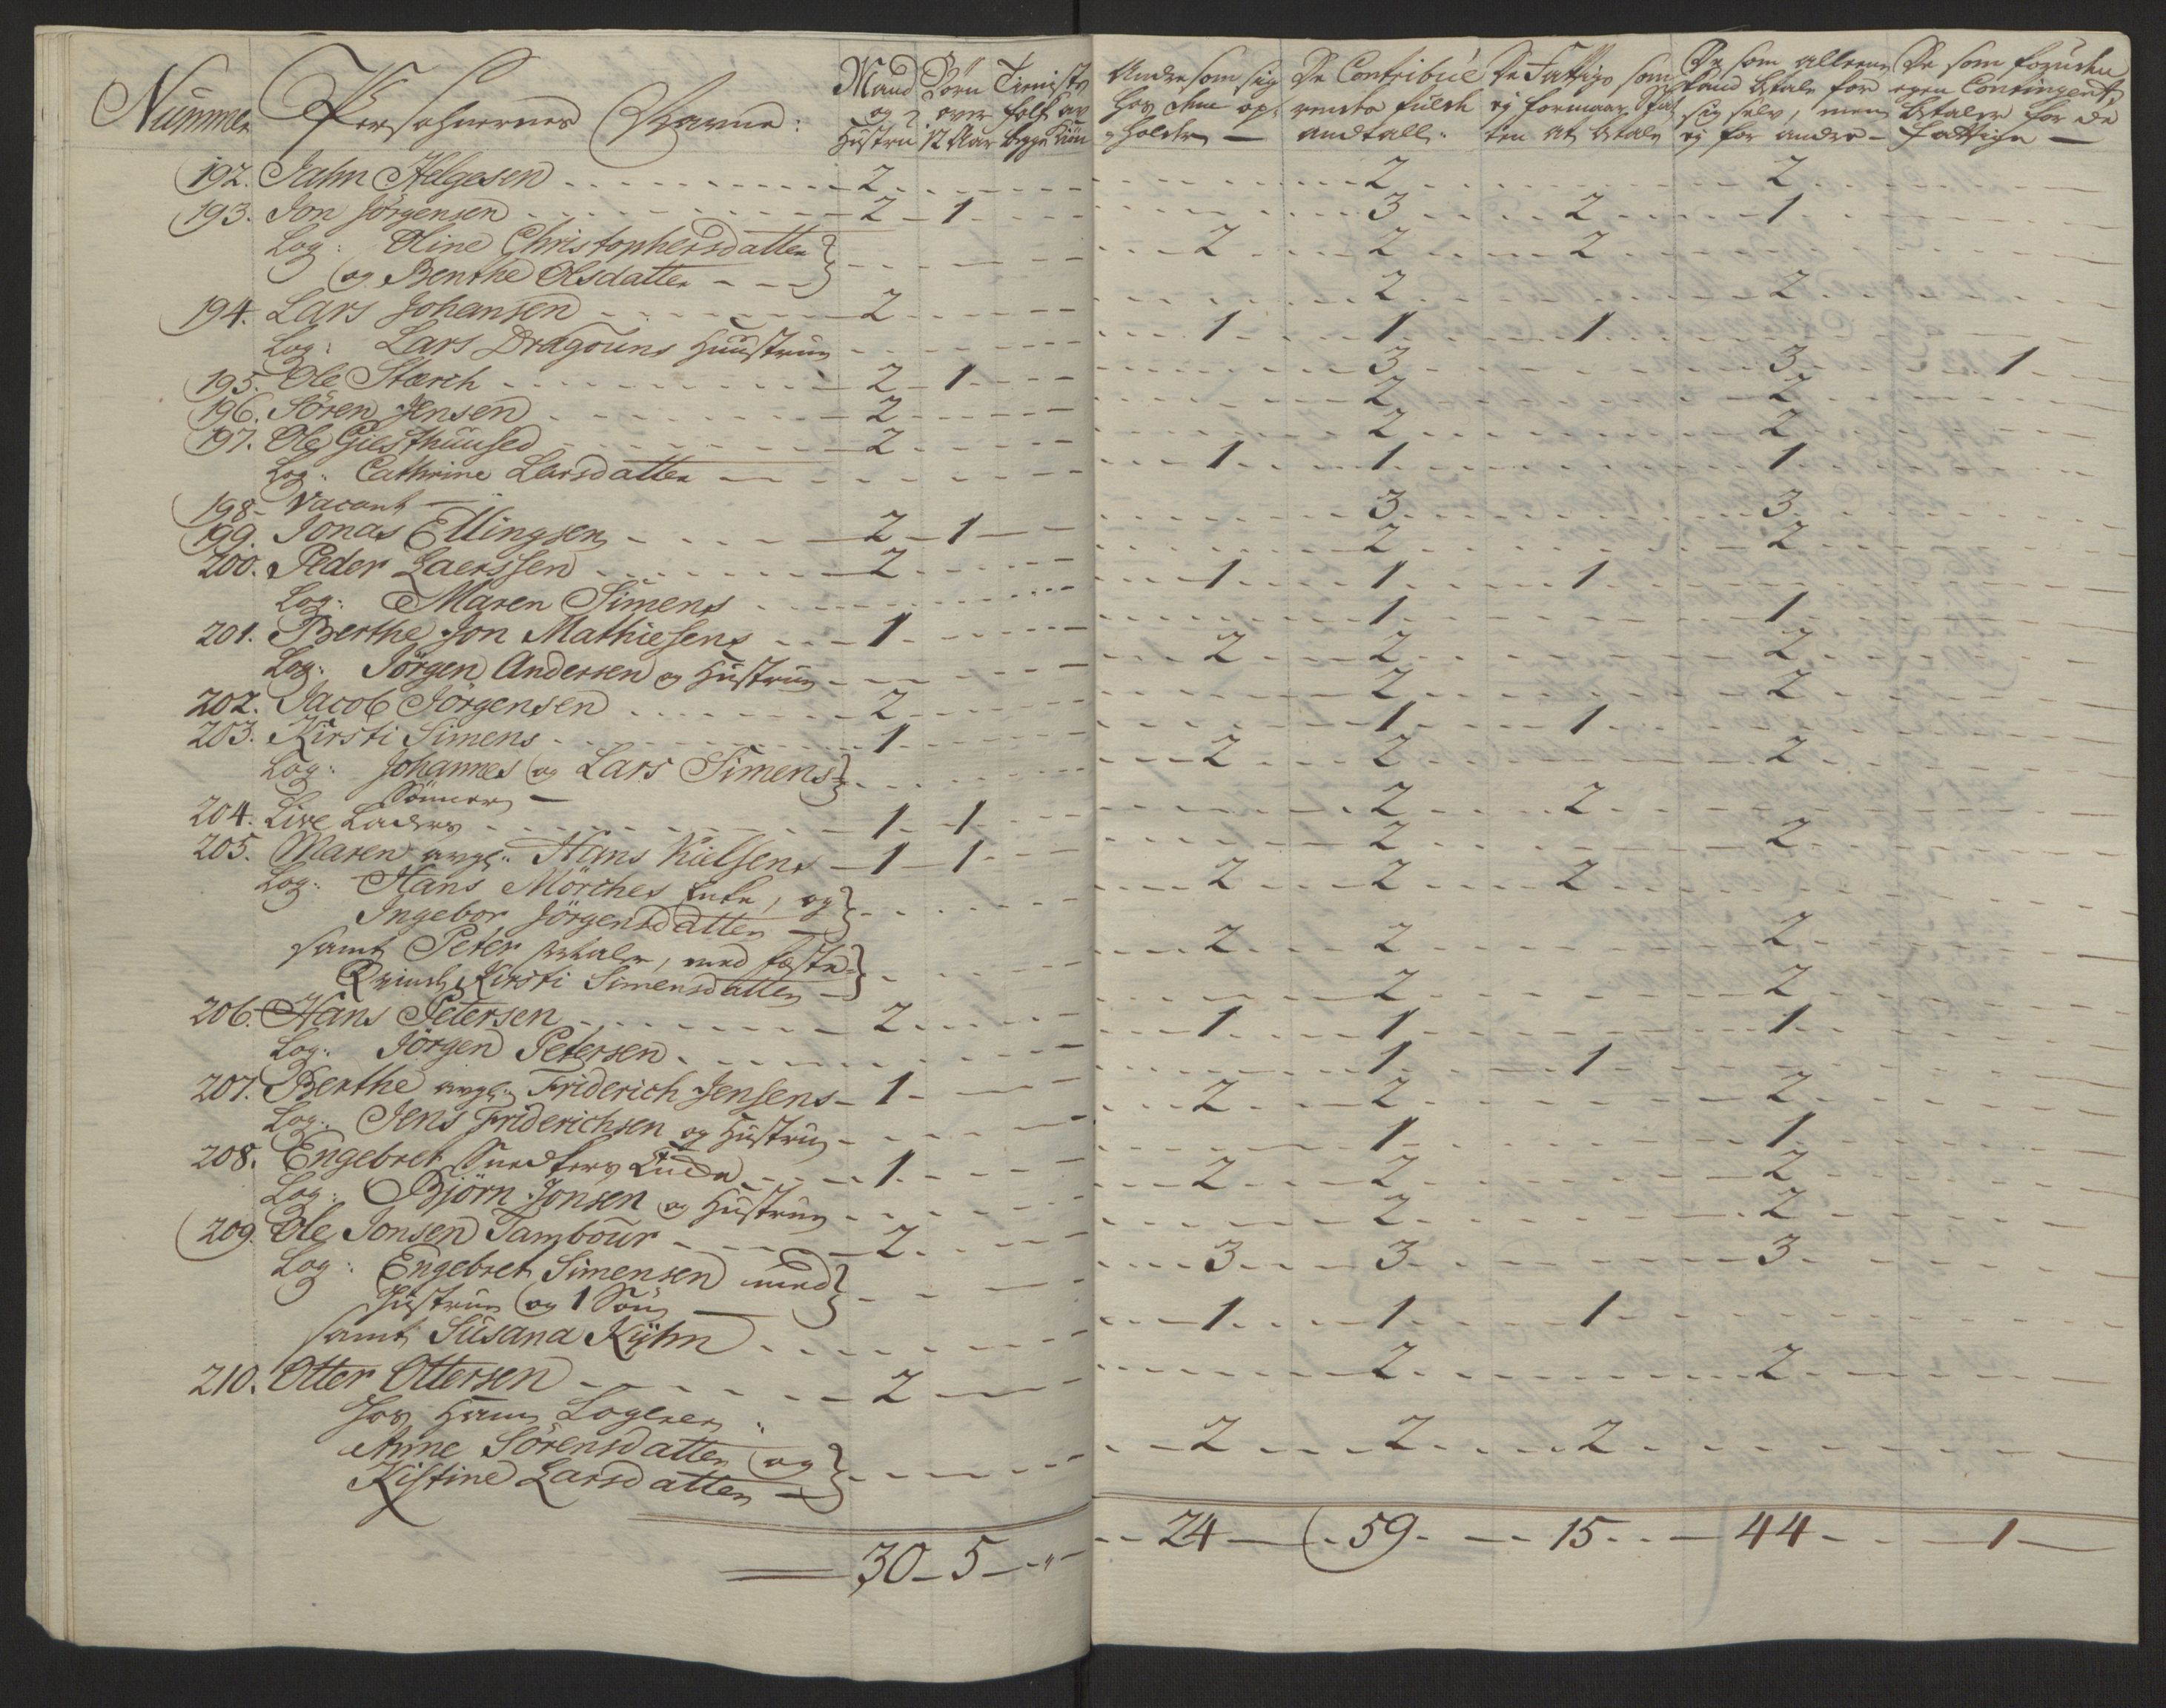 Nummer Persohnernes Navne: Mand og Hustru Börn over 12 Aar Tienistefolk av begge Kiön Andre som sig hos dem opholder De Contribuerendes fulde andtall De Fattige som ej formaar Skatten at betale De som alleene kand betale for sig selv, men ej for andre De som foruden egen Contingent, betaler for de fattige
192. Jahn Helgesen 2 2 2
193. Jon Jörgensen 2 1 3 2 1
Log: Oline Christophersdatter
og Benthe Olsdatter 2 2 2
194. Lars Johansen 2 2 2
Log: Lars Dragouns Huustrue 1 1 1
195. Ole Stærch 2 1 3 3 1
196. Sören Jensen 2 2 2
197. Ole Giesthuused 2 2 2
Log: Cathrine Larsdatter 1 1 1
198 Vacant
199. Jonas Ellingsen 2 1 3 3
200. Peder Laerssen 2 2 2
Log: Maren Simens 1 1 1
201. Berthe Jon Mathiesens 1 1 1
Log: Jörgen Andersen og Hustrue 2 2 2
202. Jacob Jörgensen 2 2 2
203. Kirsti Simens 1 1 1
Log: Johannes og Lars Simens
Sönner 2 2 2
204. Live Laders 1 1 2 2
205. Maren avgl: Hans Kielsens 1 1 2 2
Log: Hans Mörches Enke, og
Ingebor Jörgensdatter 2 2 2
samt Peter, med fæste
Qvinde Kirsti Simensdatter 2 2 2
206. Hans Petersen 2 2 2
Log: Jörgen Petersen 1 1 1
207. Berthe avgl: Friderich Jensens 1 1 1
Log: Jens Friderichsen og Hustrue 2 2 2
208. Engebret Snedkers 1 1 1
Log: Björn Jonsen og Hustrue 2 2 2
209. Ole Jonsen Tambour 2 2 2
Log: Engebret Simensen med
Hustrue og 1 Sön 3 3 3
samt Susana Kÿhn 1 1 1
210. Otter Ottersen 2 2 2
hos ham Logerer:
Anne Sörensdatter og
Kistine Larsdatter 2 2 2
30 5 " 24 59 15 44 1